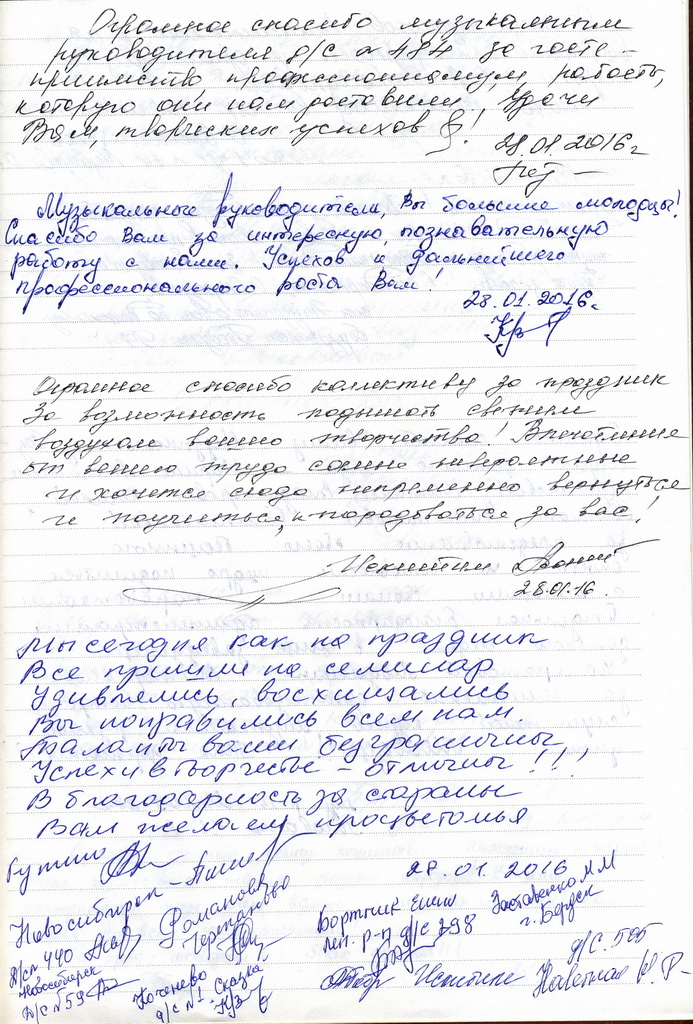 Огромное спасибо музыкальным
руководителя д/с № 484 за госте-
приимство, профессионализм, радость,
которую они нам доставили. Удачи
Вам, творческих успехов!
28.01.2016г
Музыкальные руководители, Вы большие молодцы!
Спасибо Вам за интересную, познавательную
работу с нами. Успехов и дальнейшего
профессионального роста Вам!
28.01.2016г.
Огромное спасибо коллективу за праздник
За возможность подышать свежим
воздухом вашего творчества! Впечатление
от вашего труда самые невероятные
и хочется сюда непременно вернуться
и поучиться, и порадоваться за вас!
28.01.16.
Мы сегодня как на праздник
Все пришли на семинар
Удивлялись, восхищались
Вы понравились всем нам.
Таланты ваши безграничны
Успехи в творчестве – отличны!!!
В благодарность за старанье
Вам желаем процветанья
28.01.2016
Новосибирск
Романова
Черепаново
Д/сп 440
Новосибирск
Д/с №59
Коченево
д/с №1 Сказка
Бортник
лен. р-н д/с 298
Заставенко М М
г. Бердск
д/с. 505